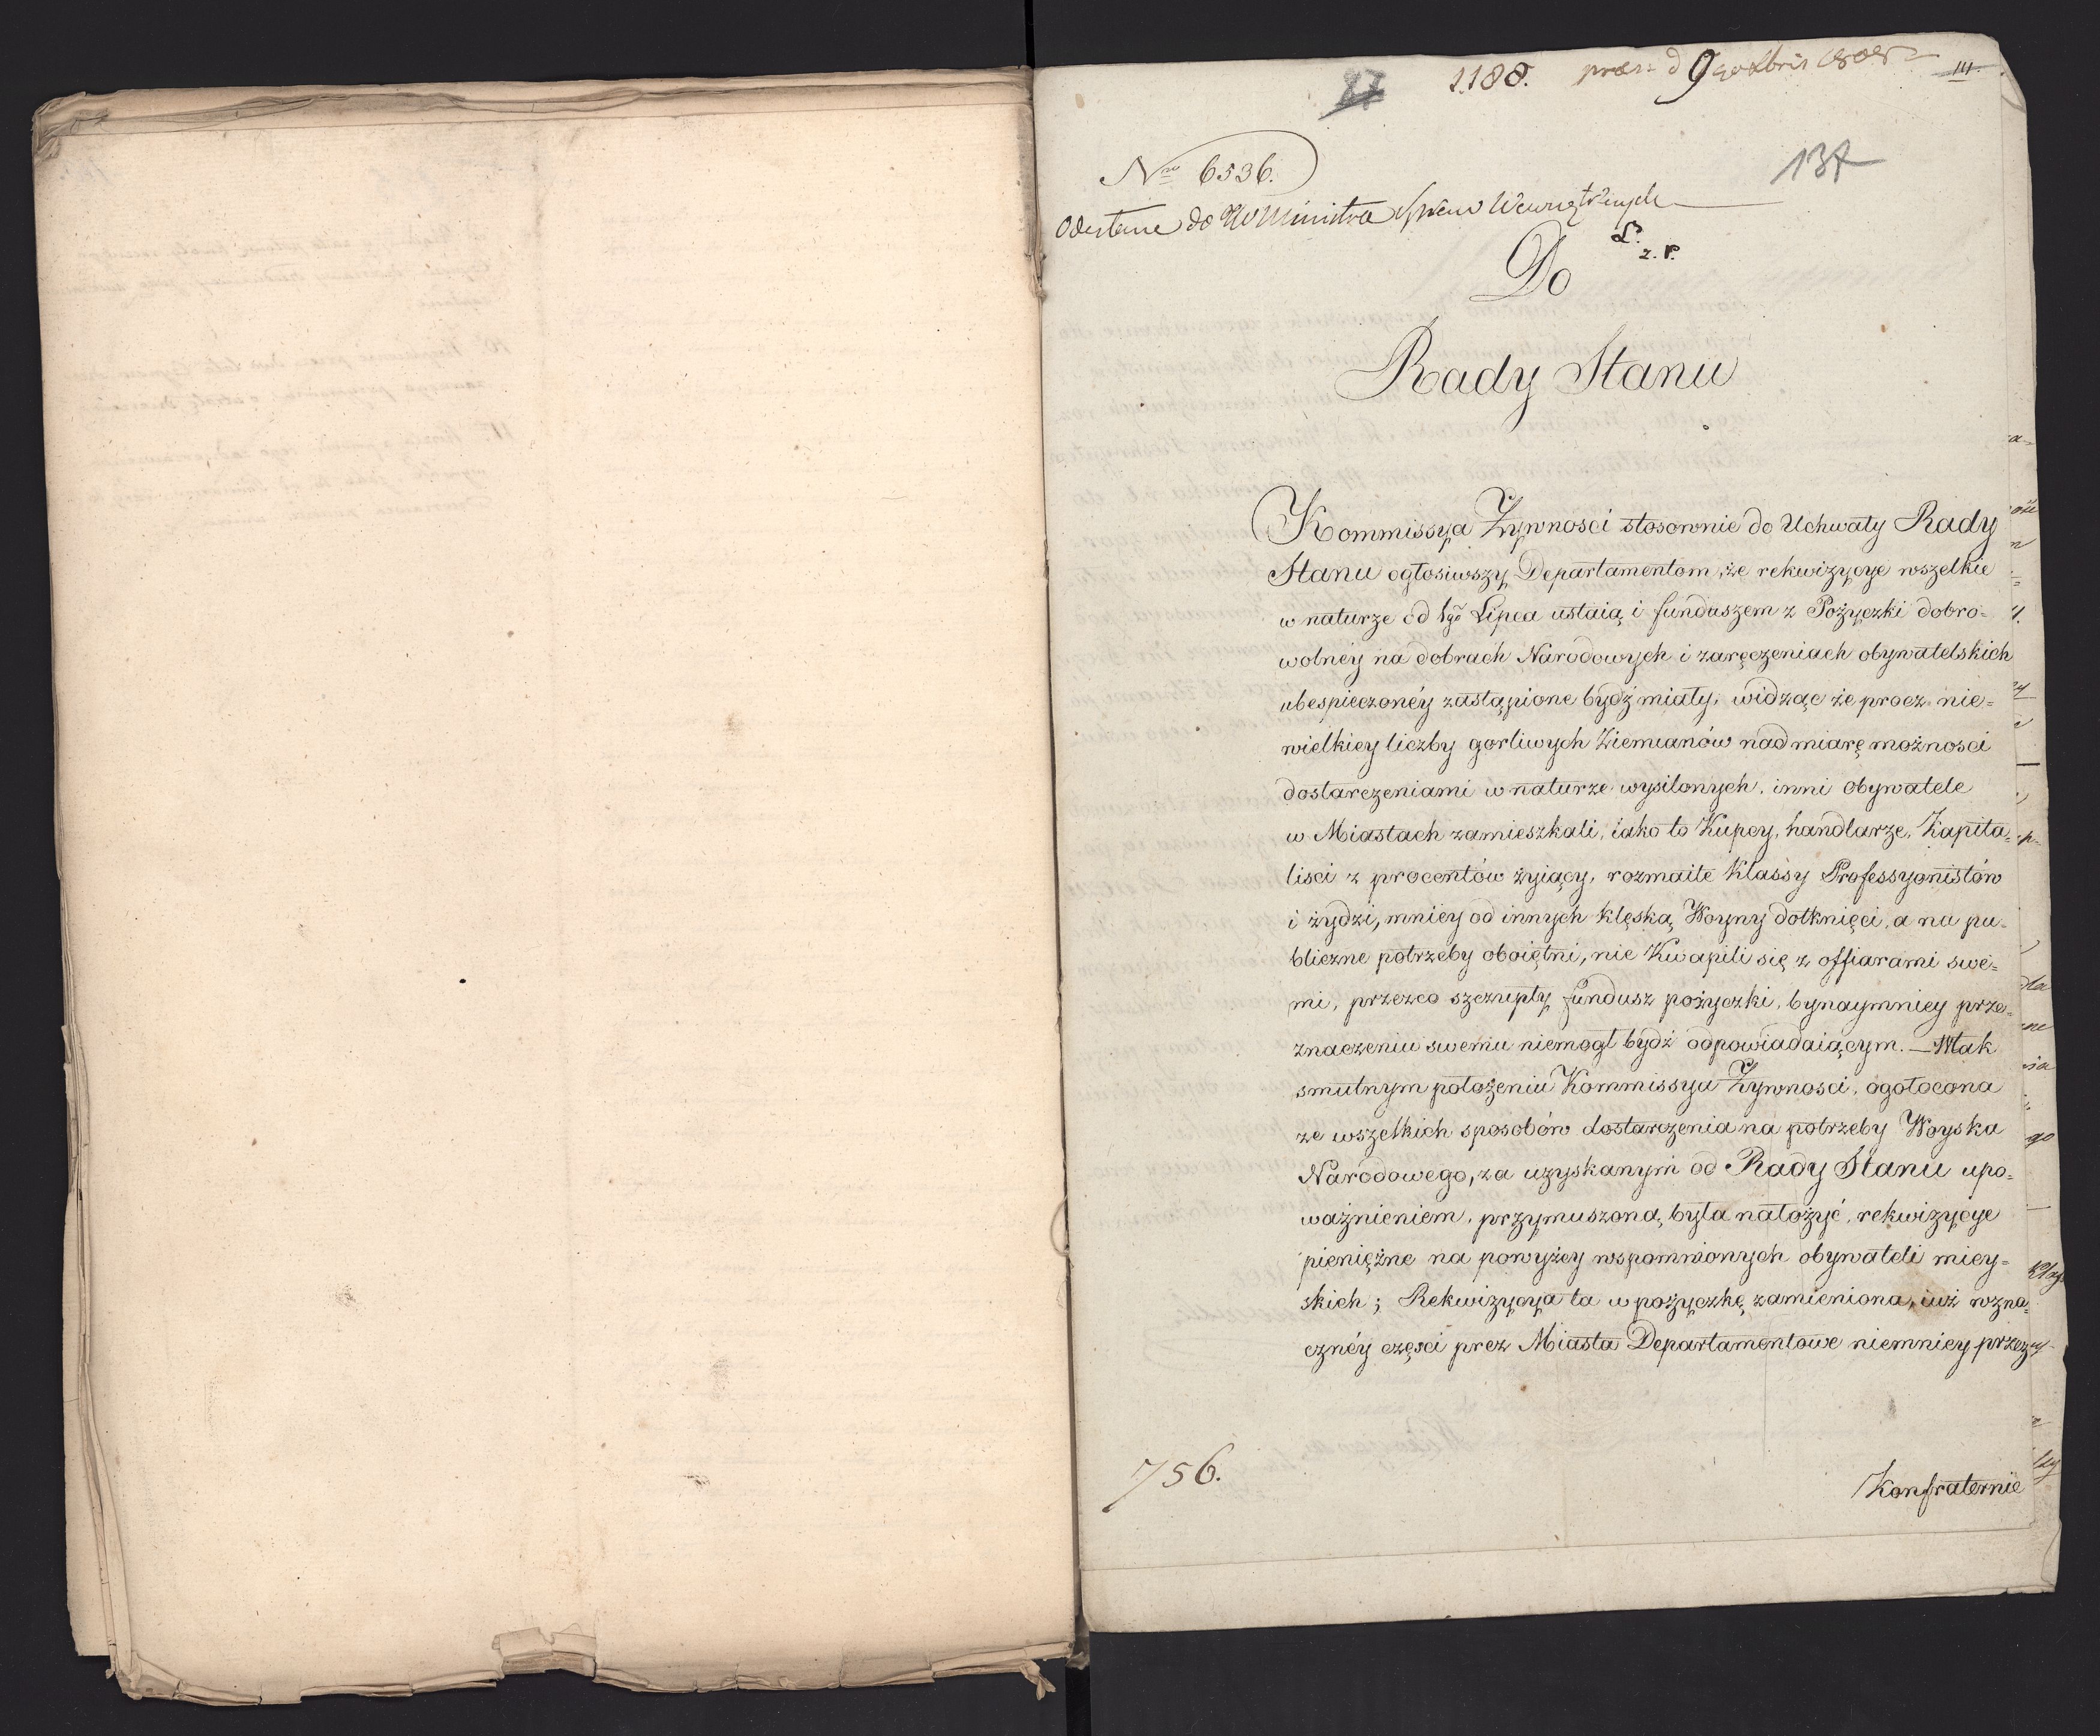 1188. præs: d 9
111.
137
Nro 6536.
Odesłane do Ministra Spraw Wewnętrznych
Do
Rady Stanu
Kommissya Żywnosci stosownie do Uchwały Rady
Stanu ogłosiwszy Departamentom, że rekwizycye wszelkie
w naturze od 1go Lipca ustaią i funduszem z Pożyczki dobro=
wolnéy na dobrach Narodowych i zaręczeniach obywatelskich
ubespieczonéy zastąpione bydź miały, widząc że procz nie=
wielkiey liczby gorliwych Ziemianów nad miarę możnosci
dostarczeniami w naturze wysilonych, inni Obywatele
w Miastach zamieszkali, iako to Kupcy, handlarze, Kapita=
lisci z procentów żyiący, rozmaite Klassy Professyonistów
i żydzi, mniey od innych klęską Woyny dotknięci, a na pu=
bliczne potrzeby oboiętni, nie Kwapili się z offiarami swe=
mi, przezco szczupły fundusz pożyczki, bynaymniey prze=
znaczeniu swemu niemogł bydź odpowiadaiącym. — W tak
smutnym położeniu Kommissya Żywnosci, ogołocona
ze wszelkich sposobów dostarczenia na potrzeby Woyska
Narodowego, za uzyskanym od Rady Stanu upo=
ważnieniem, przymuszoną była nałożyć, rekwizycye
pieniężne na powyżey wspomnionych obywateli miey=
skich; Rekwizycya ta w pożyczkę zamieniona, iuż wzna=
cznéy częsci prez Miasta Departamentowe niemniey przez
756.
Konfraternie